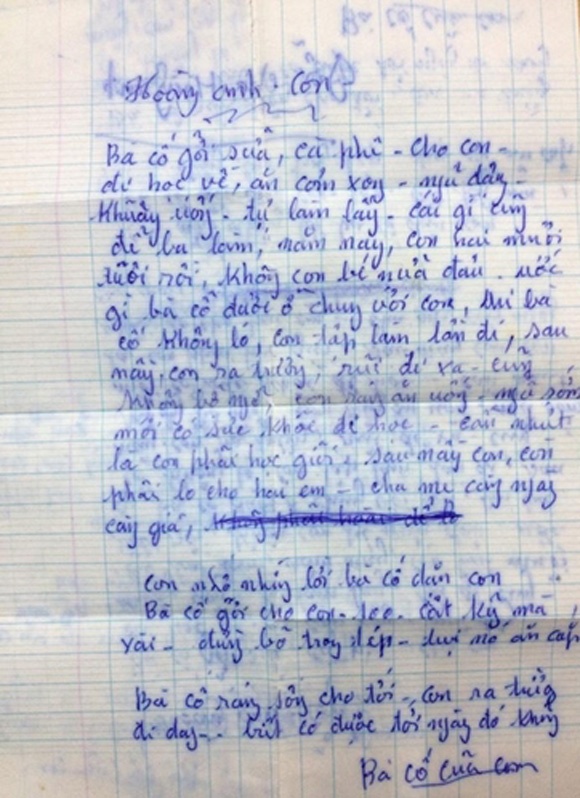 Hoàng Anh. Con
Bà cố gởi sữa, cà phê - cho con -
đi học về, ăn cơm xong - ngủ dậy -
Khuấy uống - tự làm lấy - cái gì cũng
để bà làm, năm nay, con hai mươi
tuổi rồi, không con bé nữa đâu. ước
gì bà cố dưới ở chung với con, thì bà
cố không lo, con tập làm lần đi, sau
nầy, con ra trường, rủi đi xa - cũng
không bỡ ngỡ, con ráng ăn uống - ngủ sớm
mới có sức khỏe đi học - cần nhất
là con phải học giỏi, sau nầy con, còn
phải lo cho hai em - cha mẹ càng ngày
càng già,
con nhớ những lời bà cố dặn con
Bà cố gởi cho con - 100. cất kỹ mà
xài - đừng bỏ trong - nó ăn cắp
Bà cố ráng sống cho tới - con ra trường
đi dạy - biết có được tới ngày đó không
Bà cố của con